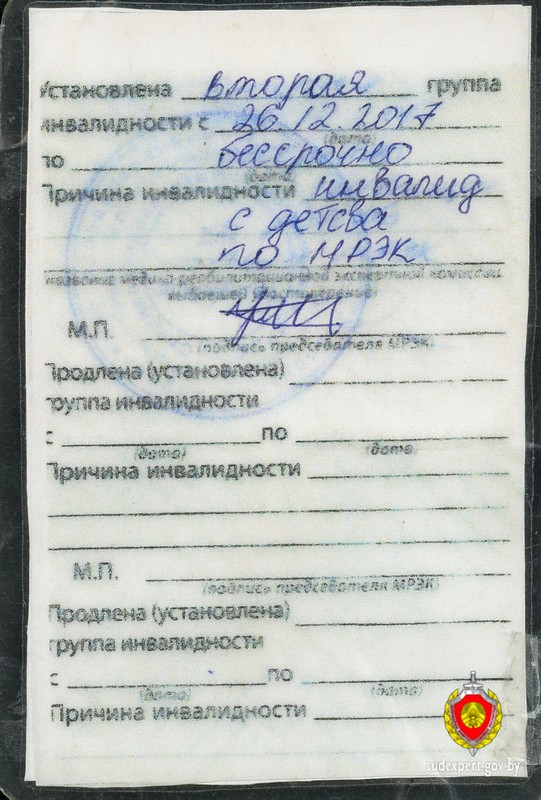 Установлена вторая группа
инвалидности с 26.12.2017
(дата)
по бессрочно
(дата)
Причина инвалидности инвалид
с детсва
по МРЭК
название медико-реабилитационной экспертной комиссии
М.П.
(подпись председателя МРЭК)
Продлена (установлена)
группа инвалидности
с по
(дата) (дата)
Причина инвалидности
М.П.
(подпись председателя МРЭК)
Продлена (установлена)
группа инвалидности
с по
(дата) (дата)
Причина инвалидности
sudexpert.gov.by